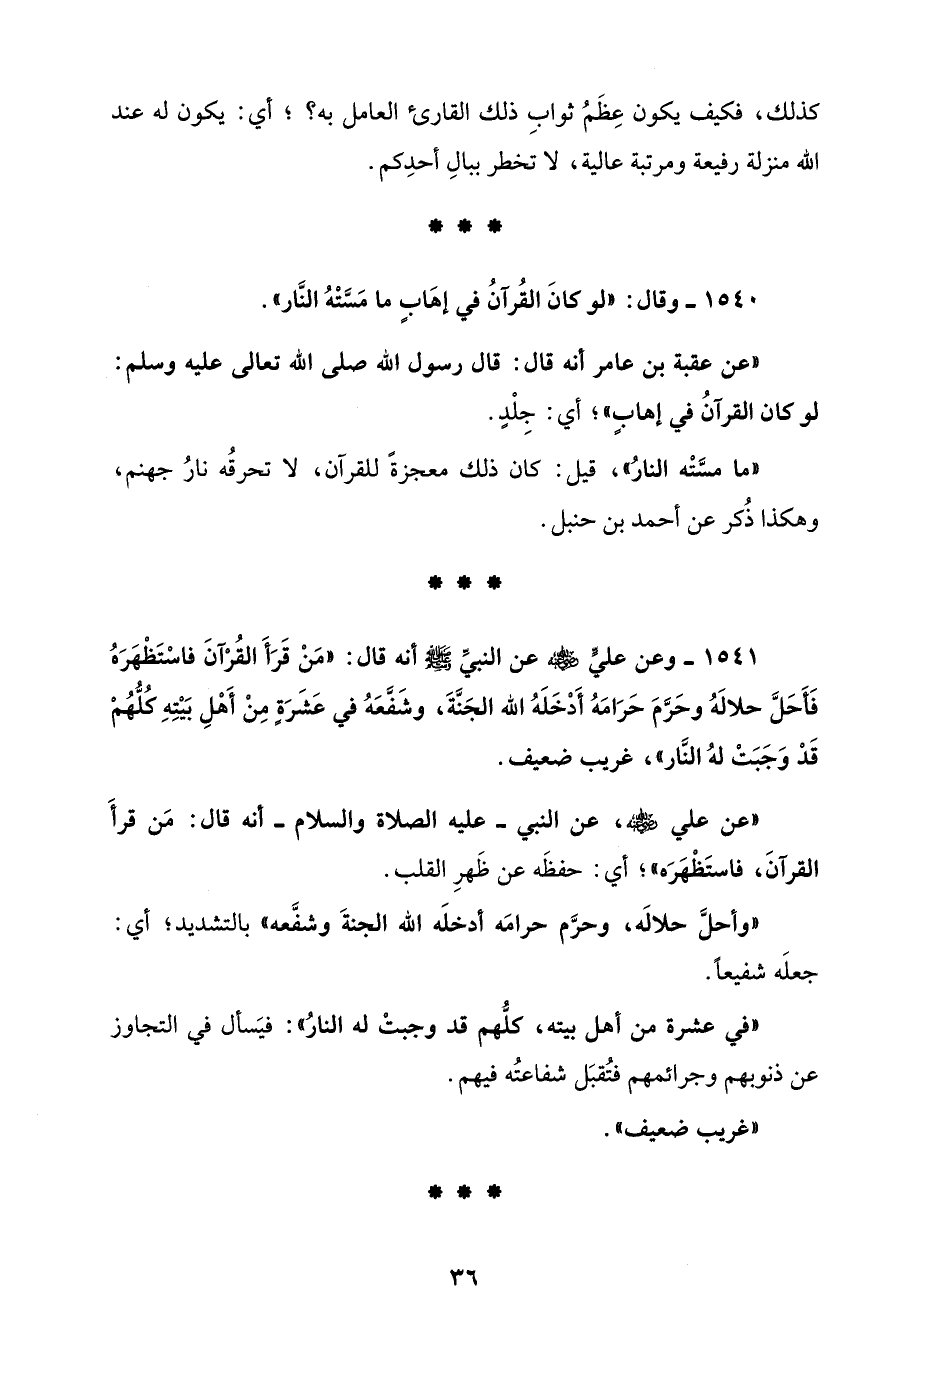 كذلك، فكيف يكون عِظَمُ ثوابِ ذلك القارئ العامل به؟ ؛ أي: يكون له عند
الله منزلة رفيعة ومرتبة عالية، لا تخطر ببالِ أحدِكم.
* * *
١٥٤٠ ـ وقال: «لو كانَ القُرآنُ في إهَابٍ ما مَسَّتْهُ النَّار».
«عن عقبة بن عامر أنه قال: قال رسول الله صلى الله تعالى عليه وسلم:
لو كان القرآنُ في إهابٍ»؛ أي: جِلْدٍ.
«ما مسَّتْه النارُ»، قيل: كان ذلك معجزةً للقرآن، لا تحرقُه نارُ جهنم،
وهكذا ذُكر عن أحمد بن حنبل.
* * *
١٥٤١ ـ وعن عليٍّ ﵁ عن النبيِّ ﷺ أنه قال: «مَنْ قَرَأَ القُرْآنَ فاسْتَظْهَرَهُ
فَأَحَلَّ حلالَهُ وحَرَّمَ حَرَامَهُ أَدْخَلَهُ الله الجَنَّةَ، وشَفَّعَهُ في عَشَرَةٍ مِنْ أَهْلِ بَيْتِهِ كُلُّهُمْ
قَدْ وَجَبَتْ لهُ النَّار»، غريب ضعيف.
«عن علي ﵁، عن النبي ـ عليه الصلاة والسلام ـ أنه قال: مَن قرأَ
القرآنَ، فاستَظْهَرَه»؛ أي: حفظَه عن ظَهرِ القلب.
«وأحلَّ حلالَه، وحرَّم حرامَه أدخلَه الله الجنةَ وشفَّعه» بالتشديد؛ أي:
جعلَه شفيعاً.
«في عشرة من أهل بيته، كلُّهم قد وجبتْ له النارُ»: فيَسأل في التجاوز
عن ذنوبهم وجرائمهم فتُقبَل شفاعتُه فيهم.
«غريب ضعيف».
* * *
٣٦